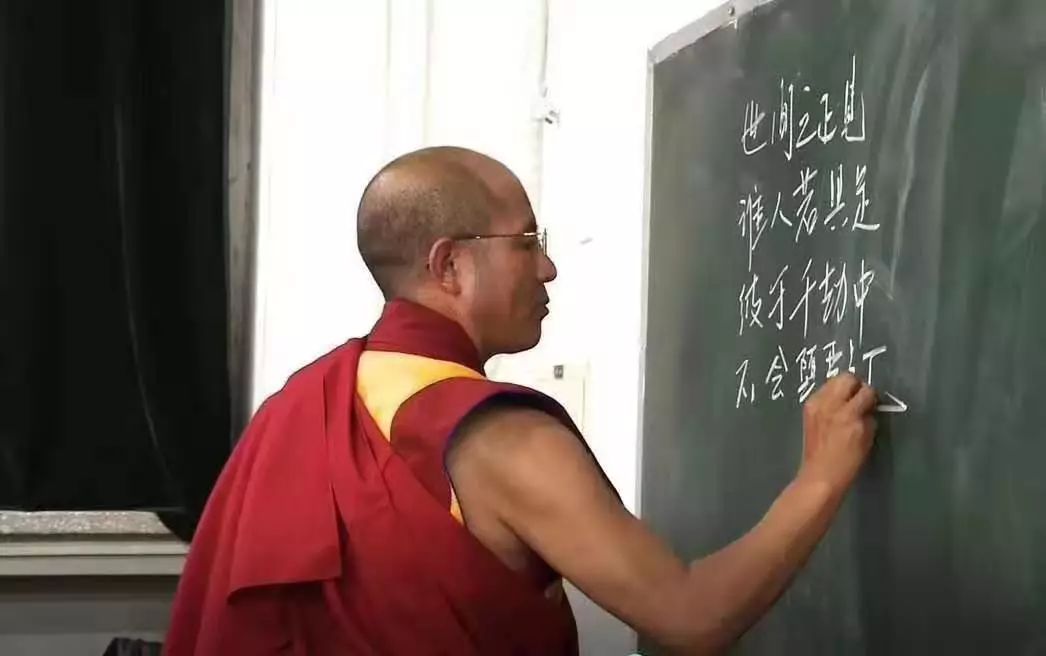 世间之正見
谁人若具足
彼于千劫中
不会堕恶